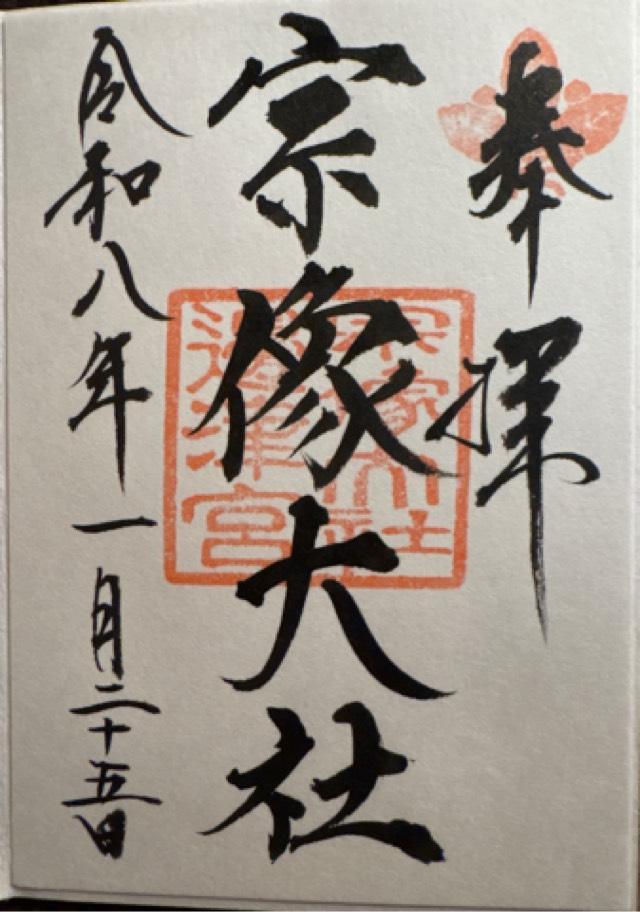 奉拝
宗像大社
宗像大社
邊津宮
令和八年一月二十五日